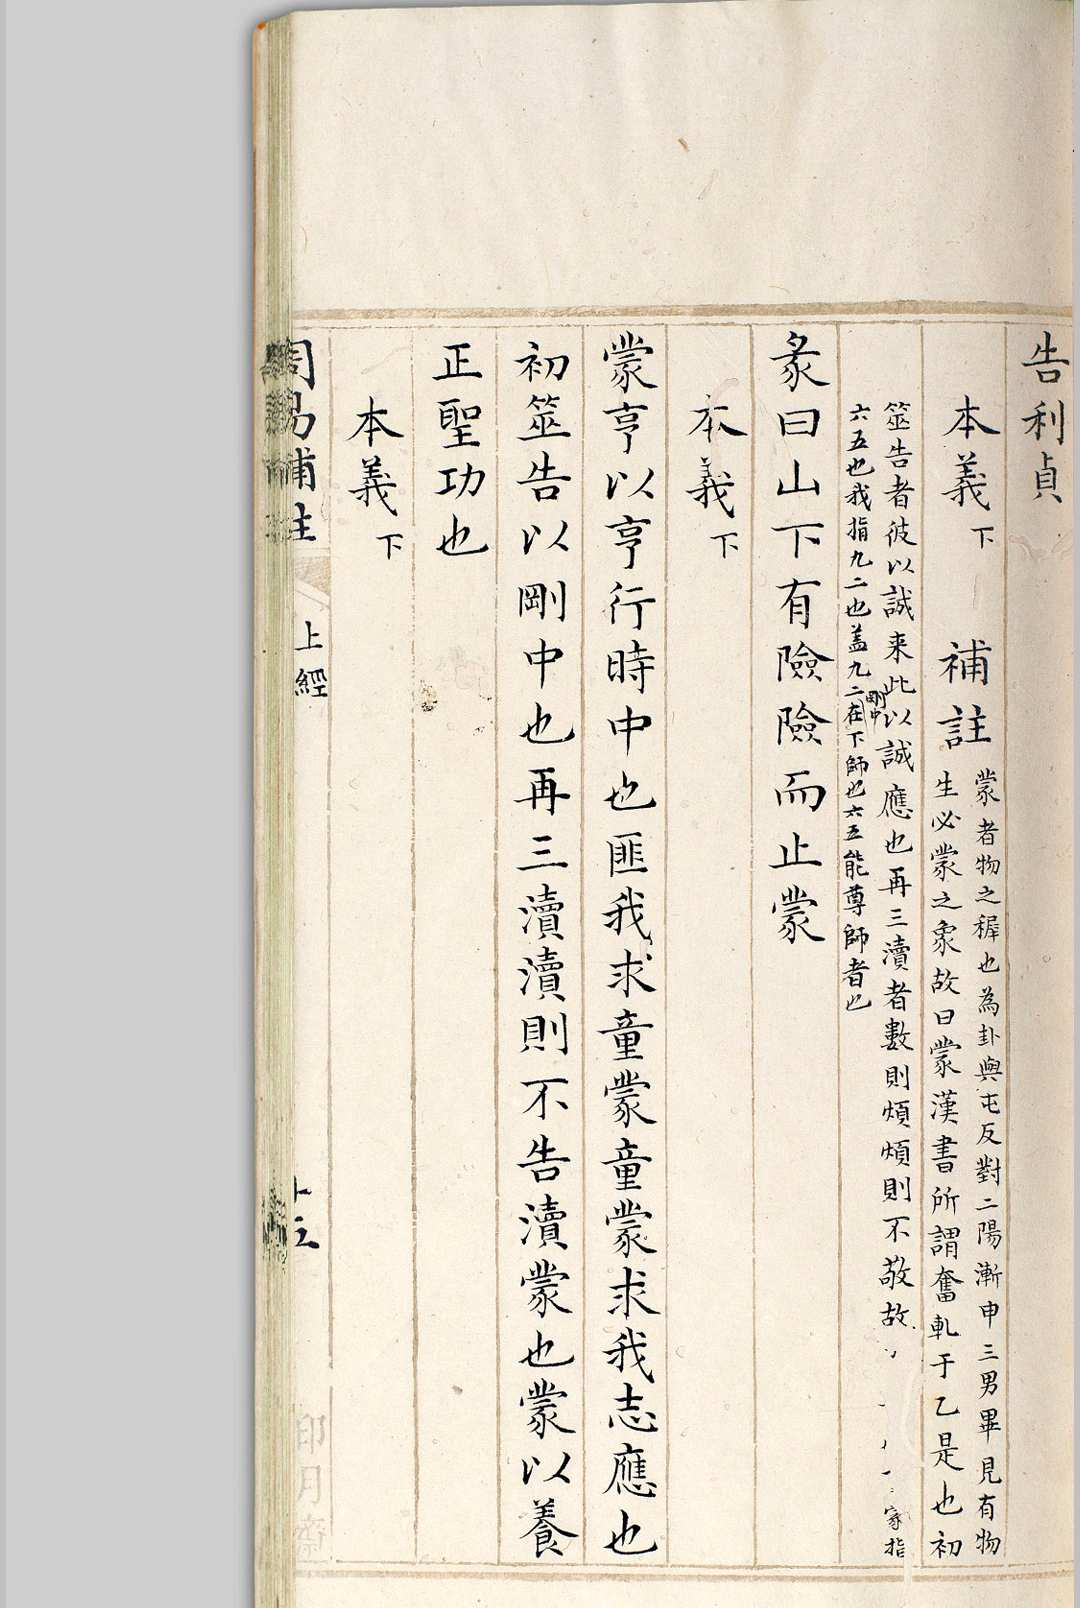 告利貞
本義下 補註
蒙者物之穉也為卦與屯反對二陽漸申三男畢見有物
生必蒙之象故曰蒙漢書所謂奮軋于乙是也初
筮告者彼以誠来此以誠應也再三瀆者數則煩煩則不敬故
家指
六五也我指九二也盖九二剛中在下師也六五能尊師者也
彖曰山下有險險而止蒙
本義下
蒙亨以亨行時中也匪我求童蒙童蒙求我志應也
初筮告以剛中也再三瀆瀆則不告瀆蒙也蒙以養
正聖功也
本義下
周易補註
上經
印月齋